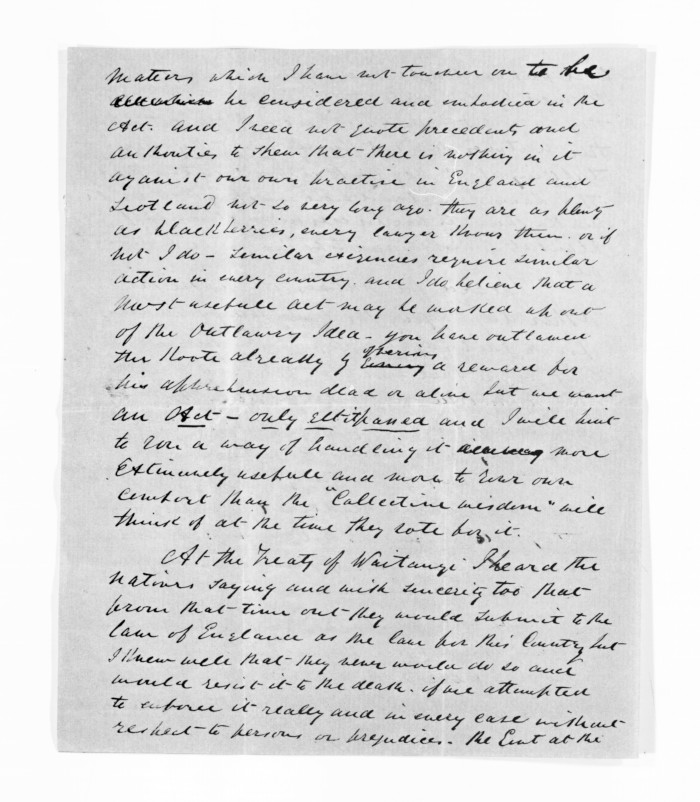 matters which I have not touched on to be
be considered and embodied in the
Act. and I need not quote precedents and
authorities to shew that there is nothing in it
against our own practise in England and
Scotland not so very long ago. they are as plenty
as blackberries, every lawyer knows them. or if
not I do – similar exigencies require similar
action in every country. and I do believe that a
most usefull act may be worked up out
of the Outlawry Idea – you have outlawed
the Koote already by offering a reward for
his apprehension dead or alive but we want
an Act – only get it passed and I will hint
to you a way of handling it more
extensively usefull and more to your own
comfort than the "Collective wisdom" will
think of at the time they vote for it.
At the Treaty of Waitangi I heard the
natives saying and with sincerity too that
from that time out they would submit to the
law of England as the law for this Country but
I knew well that they never would do so and
would resist it to the death. if we attempted
to enforce it really and in every case without
respect to persons or prejudices – the Govt at the